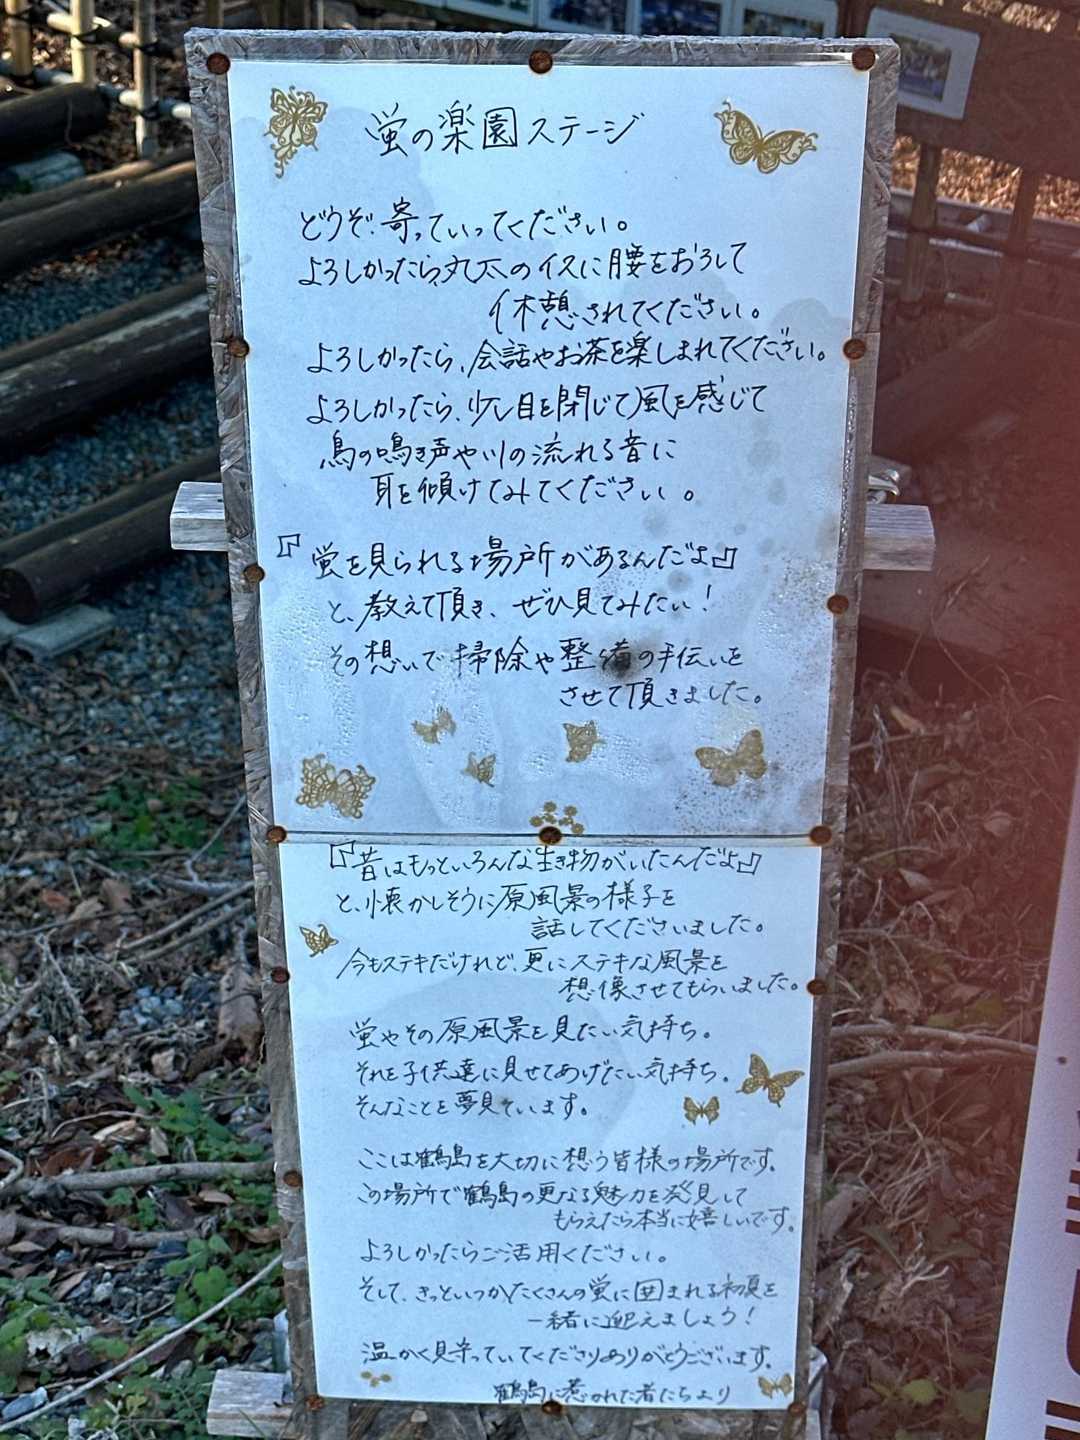 蛍の楽園ステージ
どうぞ、寄っていってください。
よろしかったら、丸太のイスに腰をおろして
休憩されてください。
よろしかったら、会話やお茶を楽しまれてください。
よろしかったら、少し目を閉じて風を感じて
鳥の鳴き声や川の流れる音に
耳を傾けてみてください。
『蛍を見られる場所があるんだよ』
と、教えて頂き、ぜひ見てみたい！
その想いで掃除や整備の手伝いを
させて頂きました。
『昔はもっといろんな生き物がいたんだよ』
と、懐かしそうに原風景の様子を
話してくださいました。
今もステキだけれど、更にステキな風景を
想像させてもらいました。
蛍やその原風景を見たい気持ち。
それを子供達に見せてあげたい気持ち。
そんなことを夢見ています。
ここは鶴島を大切に想う皆様の場所です。
この場所で鶴島の更なる魅力を発見して
もらえたら本当に嬉しいです。
よろしかったらご活用ください。
そして、きっといつか、たくさんの蛍に囲まれる初夏を
一緒に迎えましょう！
温かく見守っていてくださりありがとうございます。
鶴島に惹かれた者たちより